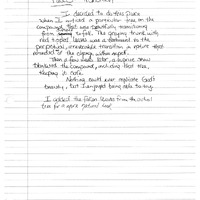 I decided to do this piece
When I noticed a particular tree on the
compound that was gracefully transitioning
from to fall. The graying trunk with
red tipped leaves was a testament to the
perpetual, unshakeable transition in nature that
occurred the change within myself.
Then a few weeks later, a surprise snow
blanketed the compound, including that tree,
keeping it safe.
Nothing could ever replicate God's
beauty, but I enjoyed being able to try.
I added the fallen leaves from the actual
tree for a more natural look.